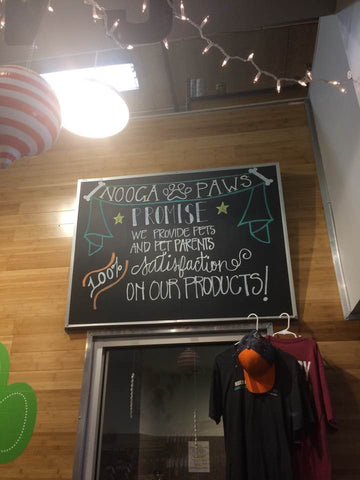 NOOGA PAWS
PROMISE
WE PROVIDE PETS
AND PET PARENTS
100% satisfaction
ON OUR PRODUCTS!